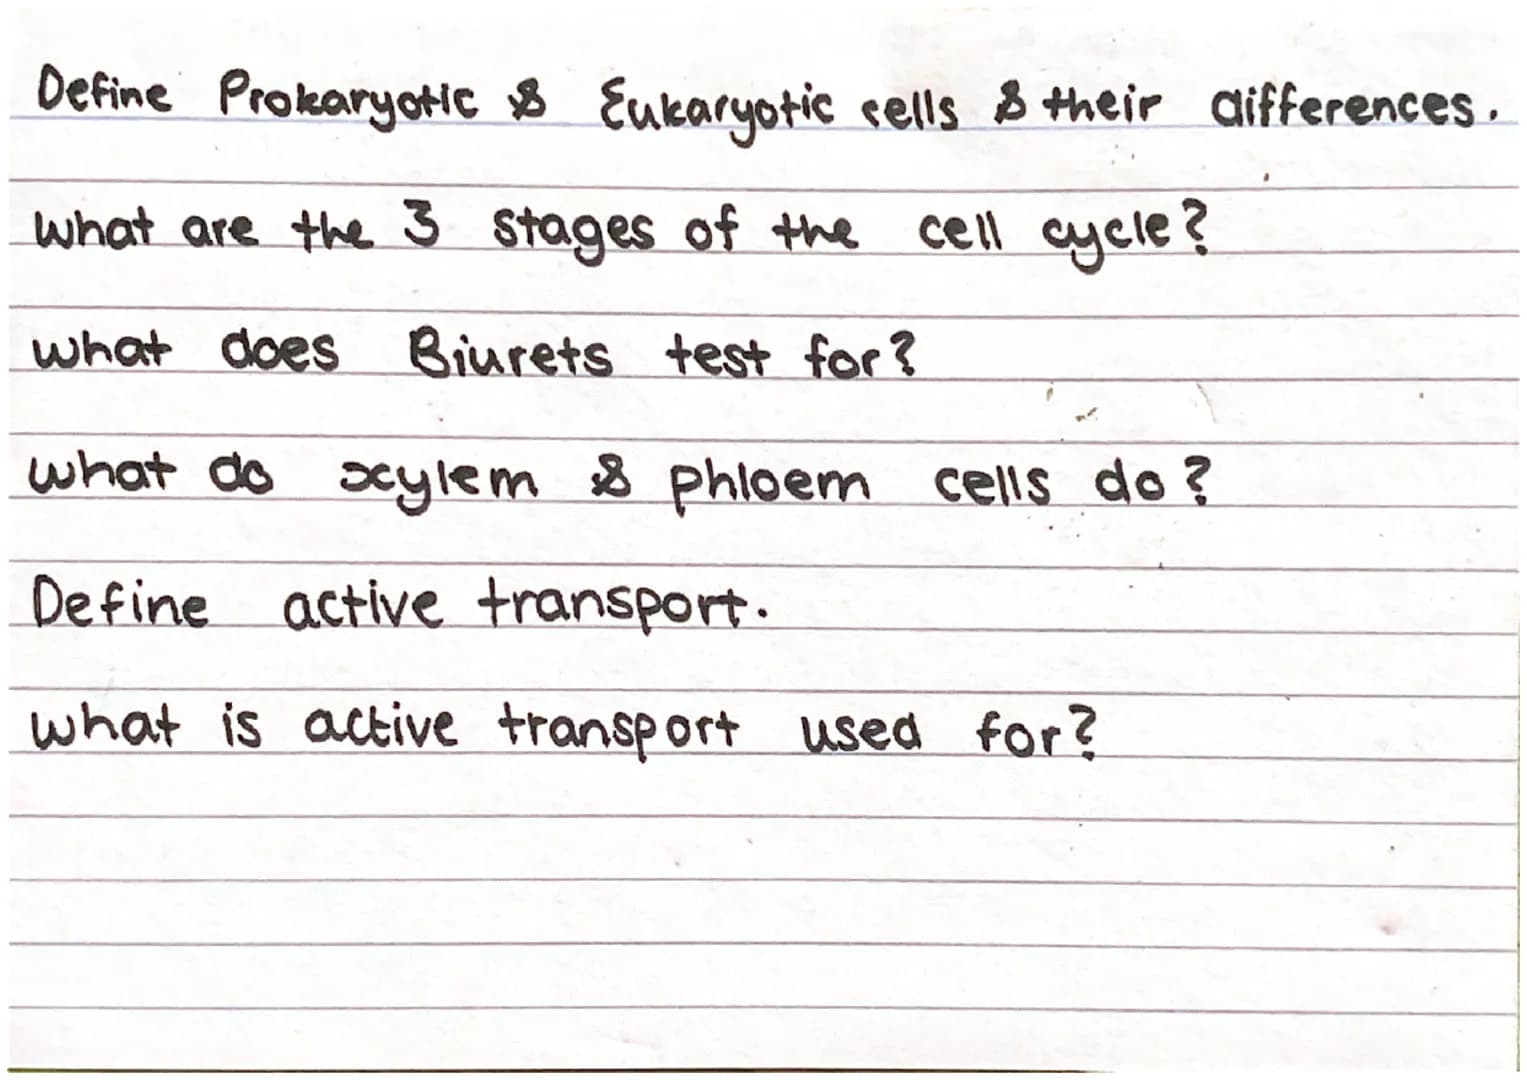 Define Prokaryotic & Eukaryotic cells & their differences.
what are the 3 stages of the cell cycle?
what does Biurets test for?
what do xylem & phloem cells do?
Define active transport.
what is active transport used for?